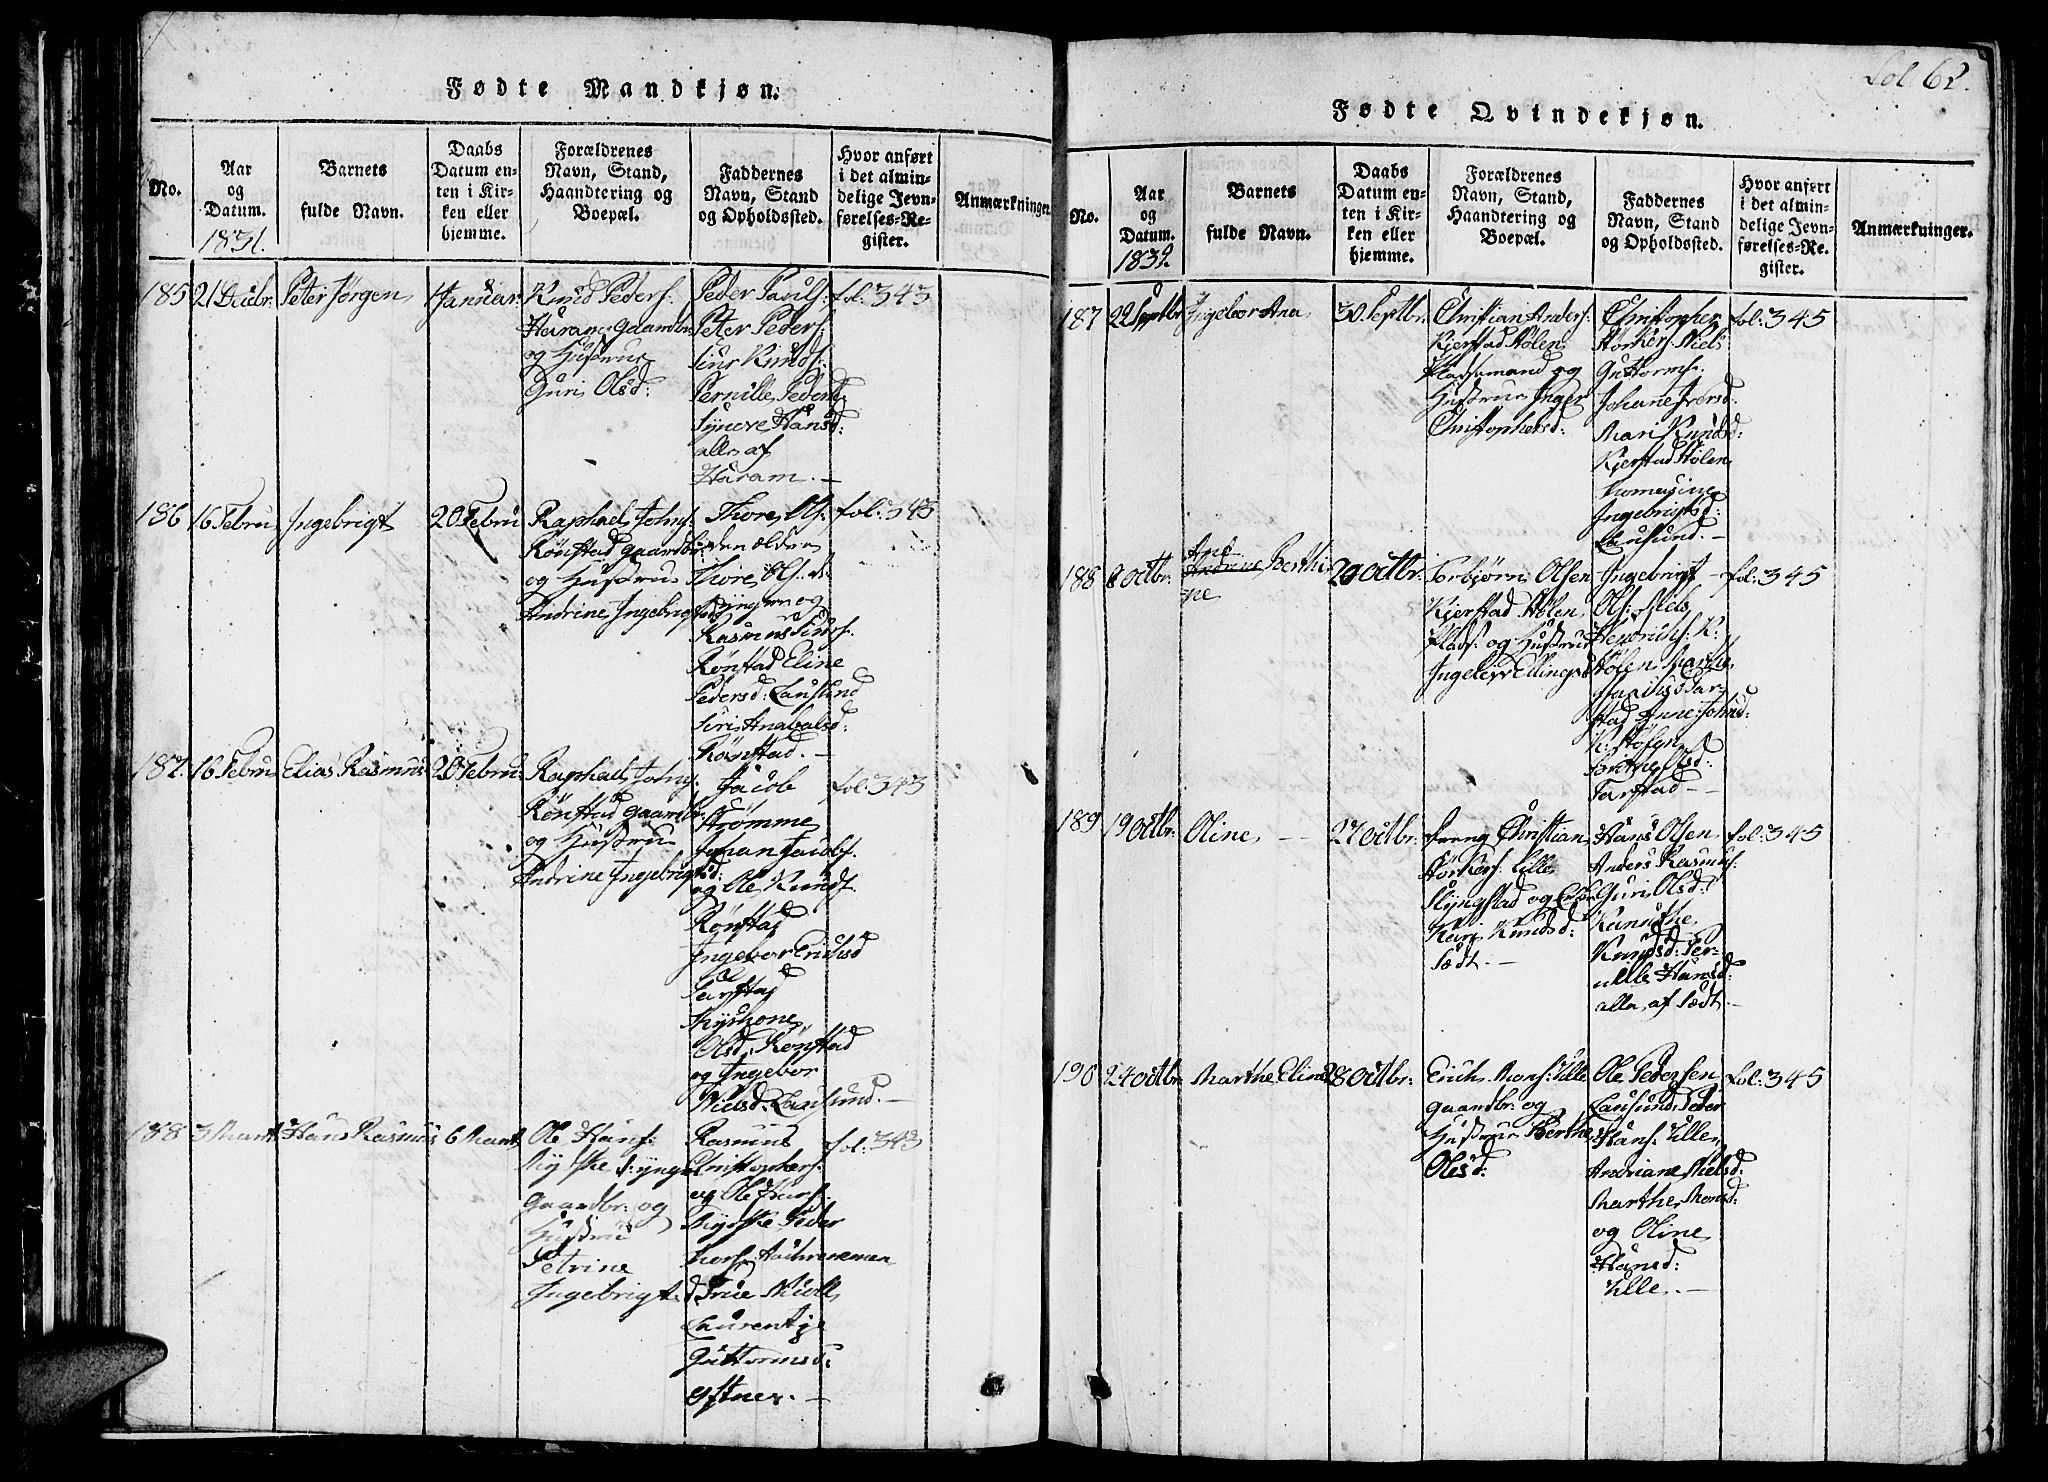 Fødte Mandkjøn.
No.
Aar
og
Datum.
1831.
Barnets
fulde Navn.
Daabs
Datum en-
ten i Kir-
ken eller
hjemme.
Forældrenes
Navn, Stand,
Haandtering og
Boepæl.
Faddernes
Navn, Stand
og Opholdssted.
Hvor anført
i det almin-
delige Jevn-
førelses-Re-
gister.
Anmærkninger.
185
21 Decbr.
Peter Jørgen
1 Januar
Knud Peders:
Haram gaardbr
og Hustrue
Guri Olsd:
Peder Pauls:
Peter Peders:
Knuds:
Pernille
Synove Hansd:
alle af
Haram. —
fol: 343
186
16 Febru
Ingebrigt
20 Febru
Raphael Johns:
Rønstad gaardbr:
og Hustrue
Andrine Ingebrigtsd:
Thore Ols:
den ældre
Thore Ols: d:
yngere og
Rasmus
Rønstad Eline
Pedersd: Lausund
Siri Anabalsd:
Rønstad. —
fol: 343
187.
16 Febru
Elias Rasmus
20 Febru:
Raphael Johns:
Rønstad gaardbr:
og Hustrue
Andrine Ingebrigtsd:
Jacob
Strømme
Johan Jacobs:
og Ole Knuds:
Rønstad
Ingebor Ericksd
Myshone
Olsd: Rønstad
og Ingebor
Nielsd: Lausund. —
fol: 343
188
3 Mart.
Hans Rasmus
6 Mart.
Ole Hans:
gaardbr: og
Hustru
Petrine
Ingebrigt
Rasmus
Christophers:
og Ole Hans:
Peder
Laurentze
Guttormsd:
fol: 343
Fol: 62.
Fødte Qvindekjøn.
No.
Aar
og
Datum.
1832.
Barnets
fulde Navn.
Daabs
Datum en-
ten i Kir-
ken eller
hjemme.
Forældrenes
Navn, Stand,
Haandtering og
Boepæl.
Faddernes
Navn, Stand
og Opholdssted.
Hvor anført
i det almin-
delige Jevn-
førelses-Re-
gister.
Anmærkninger.
187
22 Septbr
Ingebor Ana
30 Septbr.
Christian Anders:
Kjerstad Hølen
Pladsemand og
Hustrue Inger
Christophersd:
Christopher
Størkers: Niels
Guttorms:
Johane Iversd:
Mari Knudsd:
Kjerstad Hølen
Ingebrigtsd:
Lausund. —
fol: 345
188
8 Octbr.
Ane
Andrine Berthi
ne
20 Octbr.
Torbjørn Olsen
Kjerstad Hølen
Plads: og Hustrue
Ingebor Ellingsd
Ingebrigt
Ols: Niels
Hendrichs: K:
Hølen Marthe
Anne Johnsd:
K: Hølen
Olsd:
Tarstad —
fol: 345
189
19 Octbr:
Oline —
27 Octbr:
Christian
Størkers: Lille
Slyngstad og
Kari Knudsd:
Sædt. —
Hans Olsen
Anders Rasmus:
Guri Olsd:
Kanuthe
Knudsd: Per-
nille Hansd:
alle af Sædt. —
fol: 345
190
24 Octbr
Marthe Eline
28 Octbr:
Erich Mons: Ulle
gaardbr: og
Hustrue Berthe
Olesd:
Ole Pedersen
Lausund Peder
Hans: Ulle
Andriane Nielsd:
Marthe Monsd:
og Oline
Hansd:
Ulle. —
fol: 345